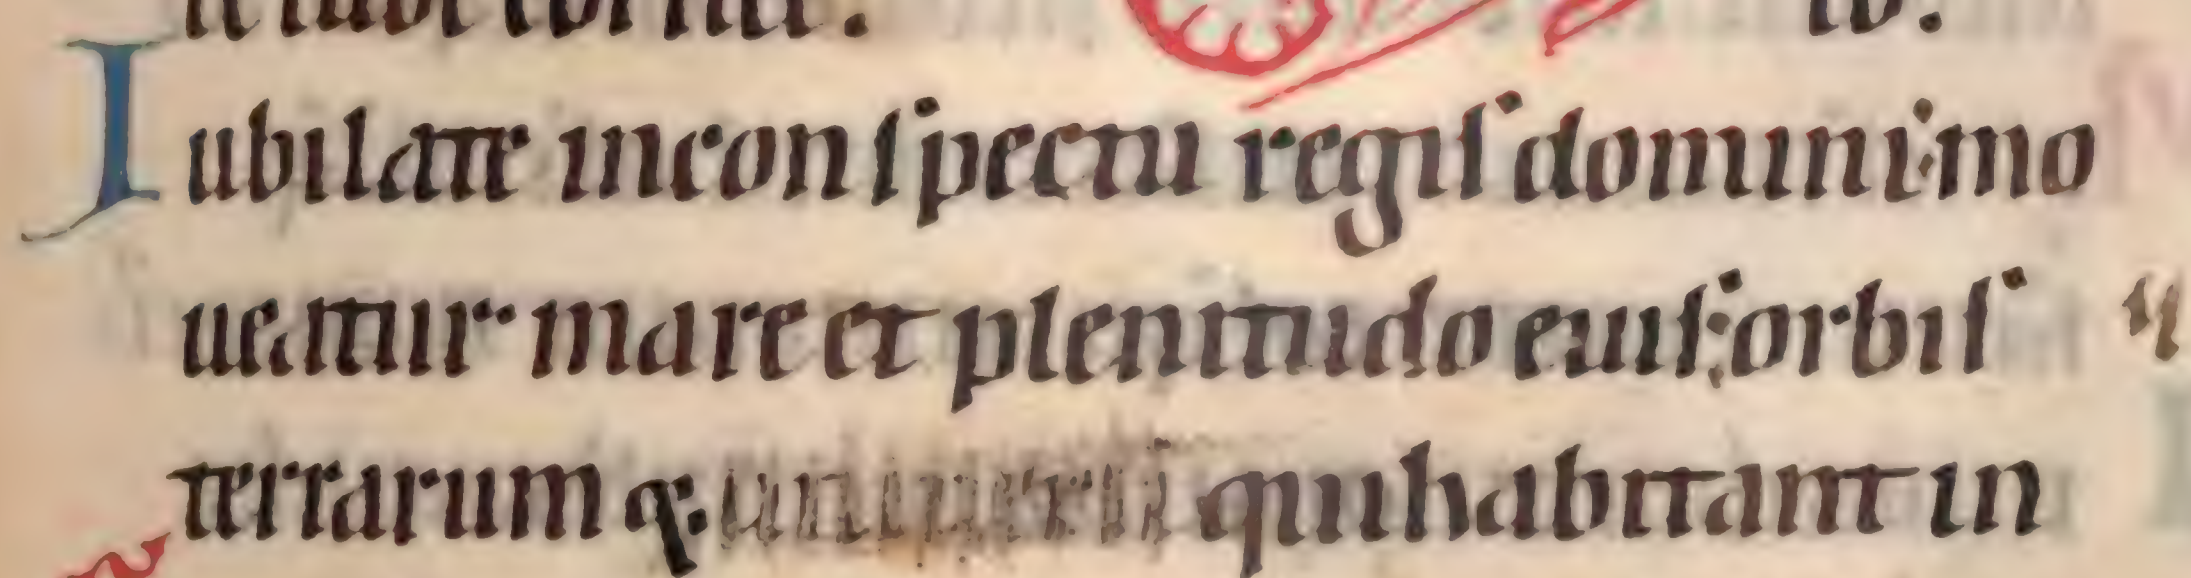 Iubilate inconspectu regis domini: mo
ueatur mare et plenitudo eius: orbis
terrarum q; uniuersi quihabitant in